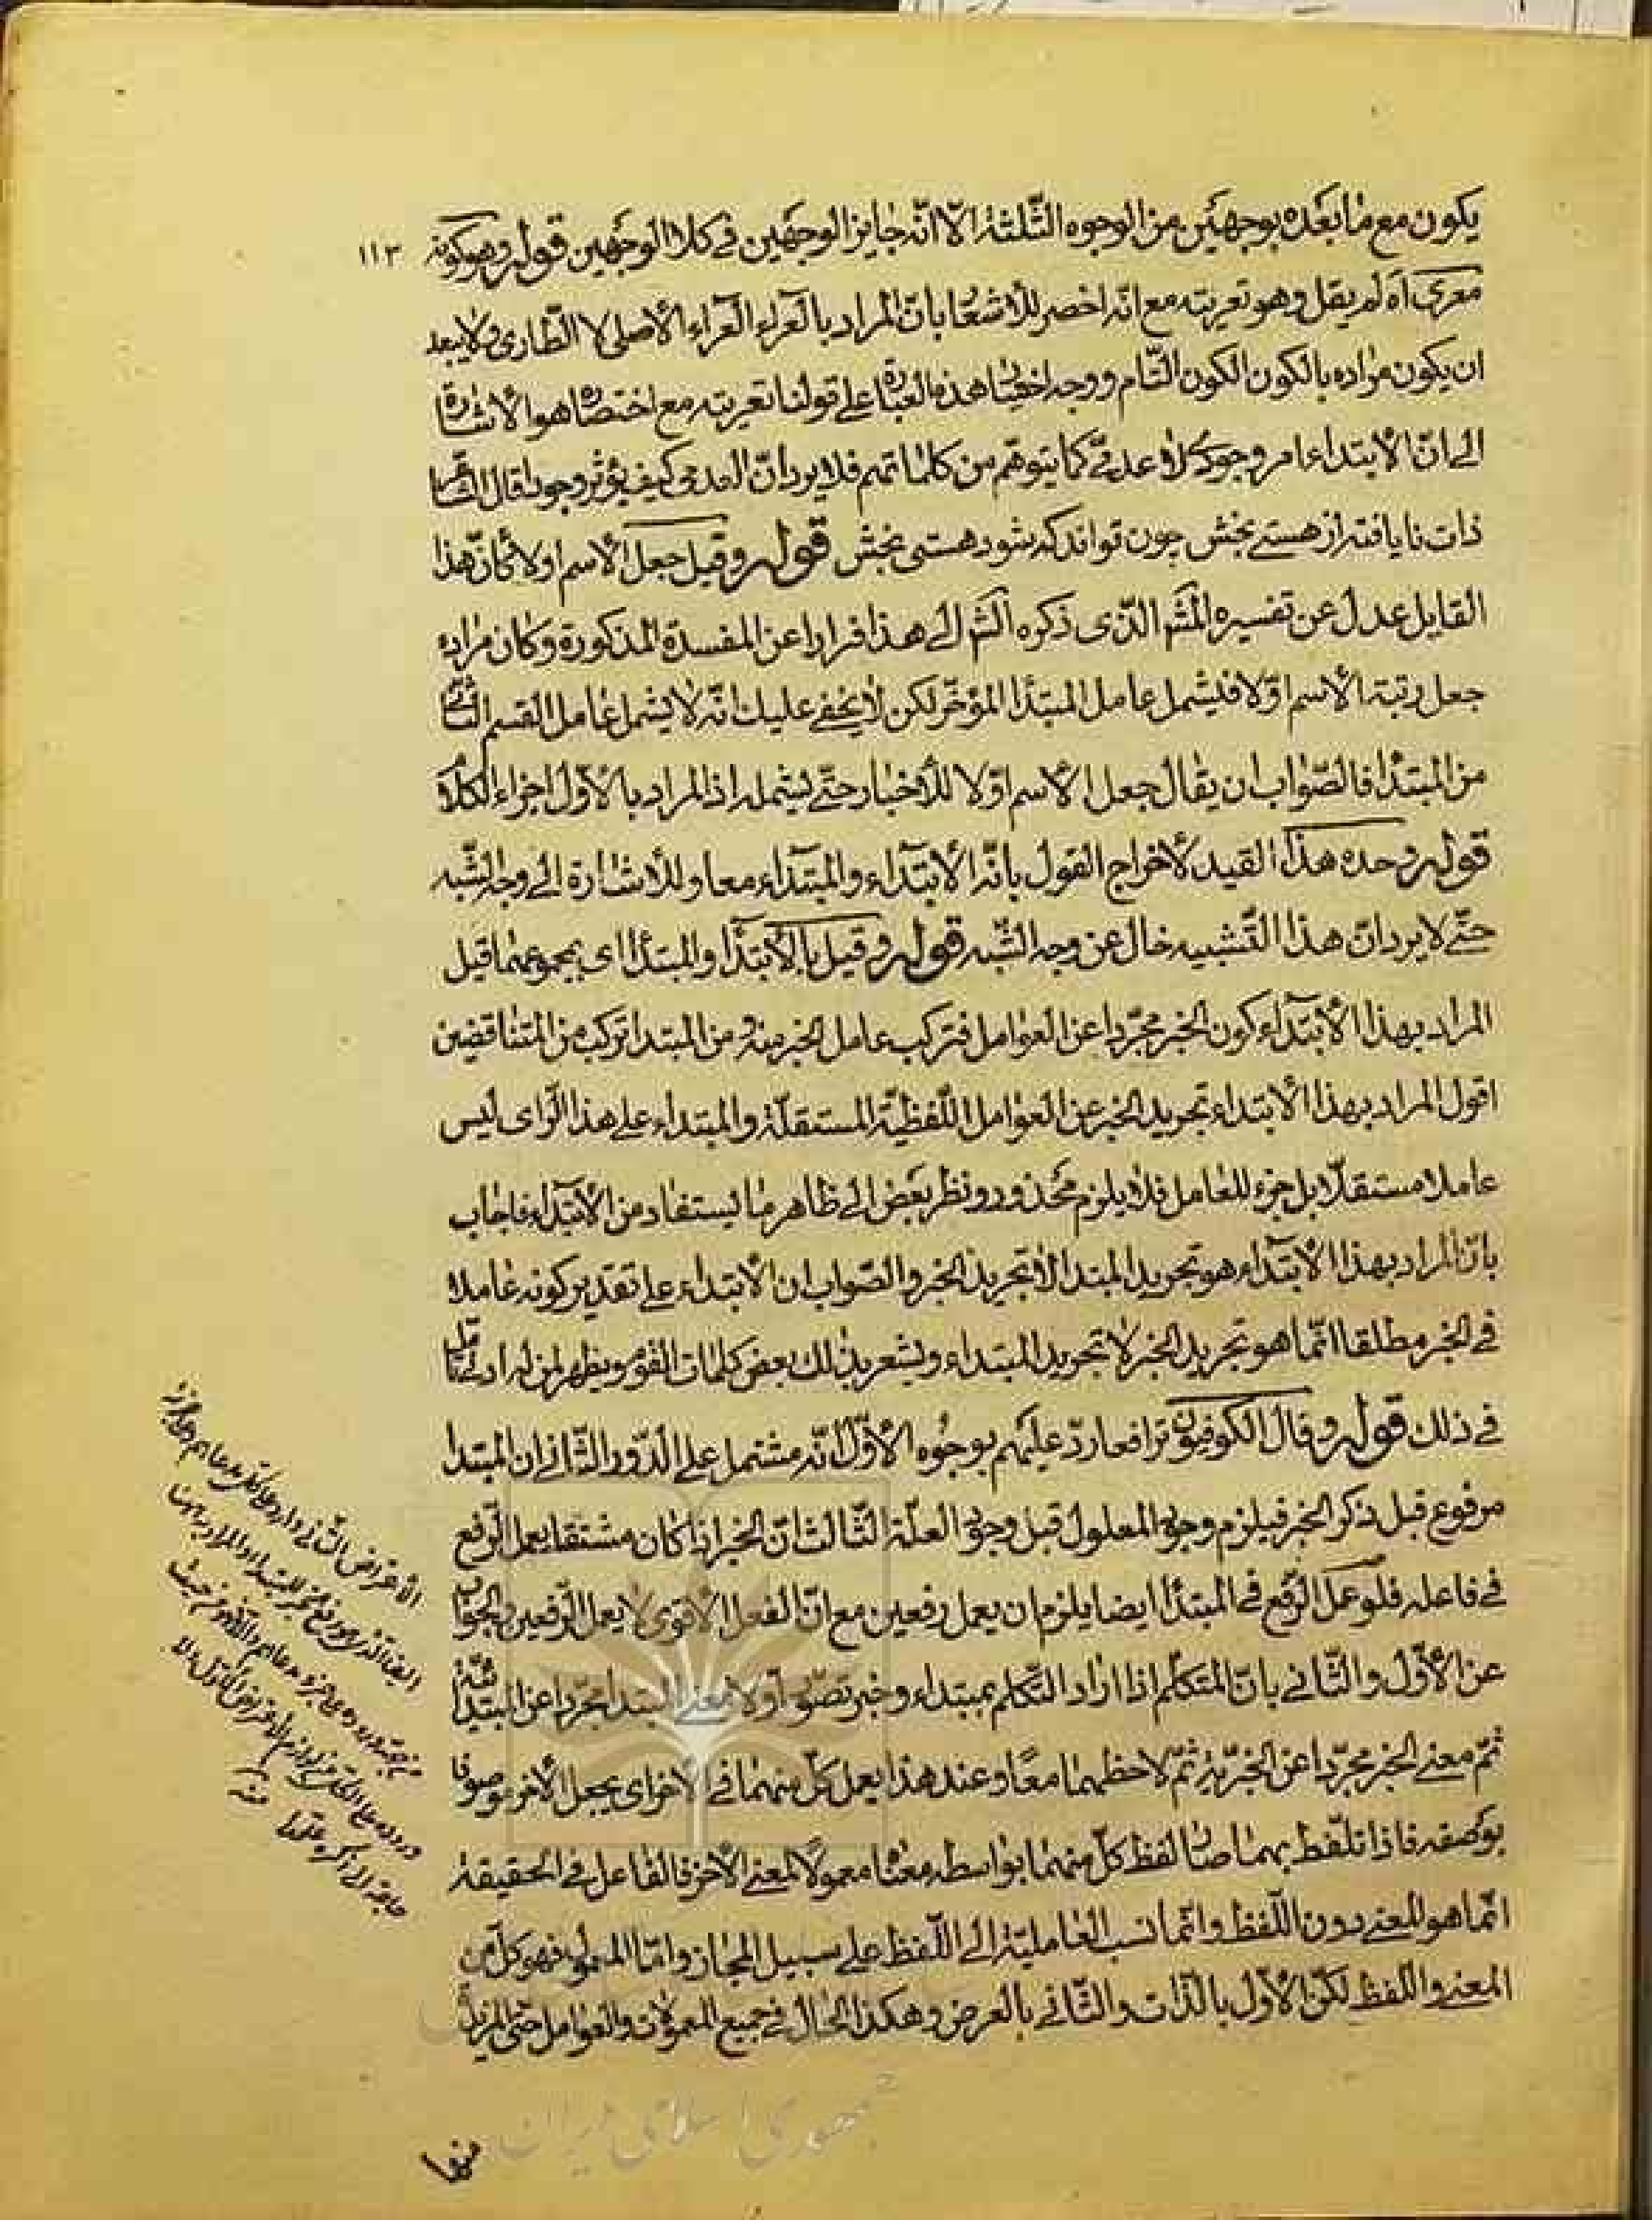 يكون مع ما بعده بوجهين من الوجوه الثلثة الا انه جايز الوجهين في كلا الوجهين قوله وهو كونه
١١٣
معرى اه لم يقل وهو تعريته مع انه اخصر للاشعار بان المراد بالعراء العراء الاصلى لا الطارى ولا يبعد
ان يكون مراده بالكون الكون التام ووجه اختيار هذه العبارة على قولنا تعريته مع اختصاره هو الاشارة
الى ان الابتداء امر وجودى لا عدمى كما يتوهم من كلماتهم فلا يرد ان العدمى كيف يؤثر وجوديا قال الشاعر
ذات نايافته از هستى بخش چون تواند كه شود هستى بخش قوله وقيل جعل الاسم اولا كان هذا
القايل عدل عن تفسيره المش الذى ذكره الش الى هذا فرارا عن المفسدة المذكورة وكان مراده
جعل رتبة الاسم اولا فيشمل عامل المبتدا المؤخر لكن لا يخفى عليك انه لا يشمل عامل القسم الثانى
من المبتدا فالصواب ان يقال جعل الاسم اولا للاخبار حتى يشمله اذ المراد بالاول اجزاء الكلام
قوله وحده هذا القيد لاخراج القول بانه الابتداء والمبتداء معا وللاشارة الى وجه الشبه
حتى لا يرد ان هذا التشبيه خال عن وجه الشبه قوله وقيل بالابتداء والمبتدا اى بمجموعهما قيل
المراد بهذا الابتداء كون الخبر مجردا عن العوامل فتركب عامل الخبر منه ومن المبتدا تركب من المتناقضين
اقول المراد بهذا الابتداء تجريد الخبر عن العوامل اللفظية المستقلة والمبتداء على هذا الراى ليس
عاملا مستقلا بل جزء للعامل فلا يلزم محذور ونظر بعض الى ظاهر ما يستفاد من الابتداء فاجاب
بان المراد بهذا الابتداء هو تجريد المبتدا لا تجريد الخبر والصواب ان الابتداء على تقدير كونه عاملا
في الخبر مطلقا انما هو تجريد الخبر لا تجريد المبتداء ويشعر بذلك بعض كلمات القوم ويظهر لمن له ادنى تامل
في ذلك قوله وقال الكوفيون ترافعا رد عليهم بوجوه الاول انه مشتمل على الدور والثانى ان المبتدا
مرفوع قبل ذكر الخبر فيلزم وجود المعلول قبل وجود العلة الثالث ان الخبر اذا كان مشتقا يعمل الرفع
في فاعله فلو عمل الرفع في المبتدا ايضا يلزم ان يعمل رفعين مع ان الفعل الاقوى لا يعمل الرفعين والجواب
عن الاول والثانى بان المتكلم اذا اراد التكلم بمبتداء وخبر تصور اولا معنى المبتدا مجردا عن المبتدائية
ثم معنى الخبر مجردا عن الخبرية ثم لاحظهما معا وعند هذا يعمل كل منهما في الاخر اى يجعل الاخر موصوفا
بوصفه فاذا تلفظ بهما صار لفظ كل منهما بواسطه معناه معمولا لمعنى الاخر فالفاعل في الحقيقة
انما هو المعنى دون اللفظ وانما نسب العاملية الى اللفظ على سبيل المجاز واما المعمول فهو كل من
المعنى واللفظ لكن الاول بالذات والثانى بالعرض وهكذا الحال في جميع المعمولات والعوامل حتى المزيل
الاعتراض الثانى وارد على
منه
جمهوري اسلامي ايران